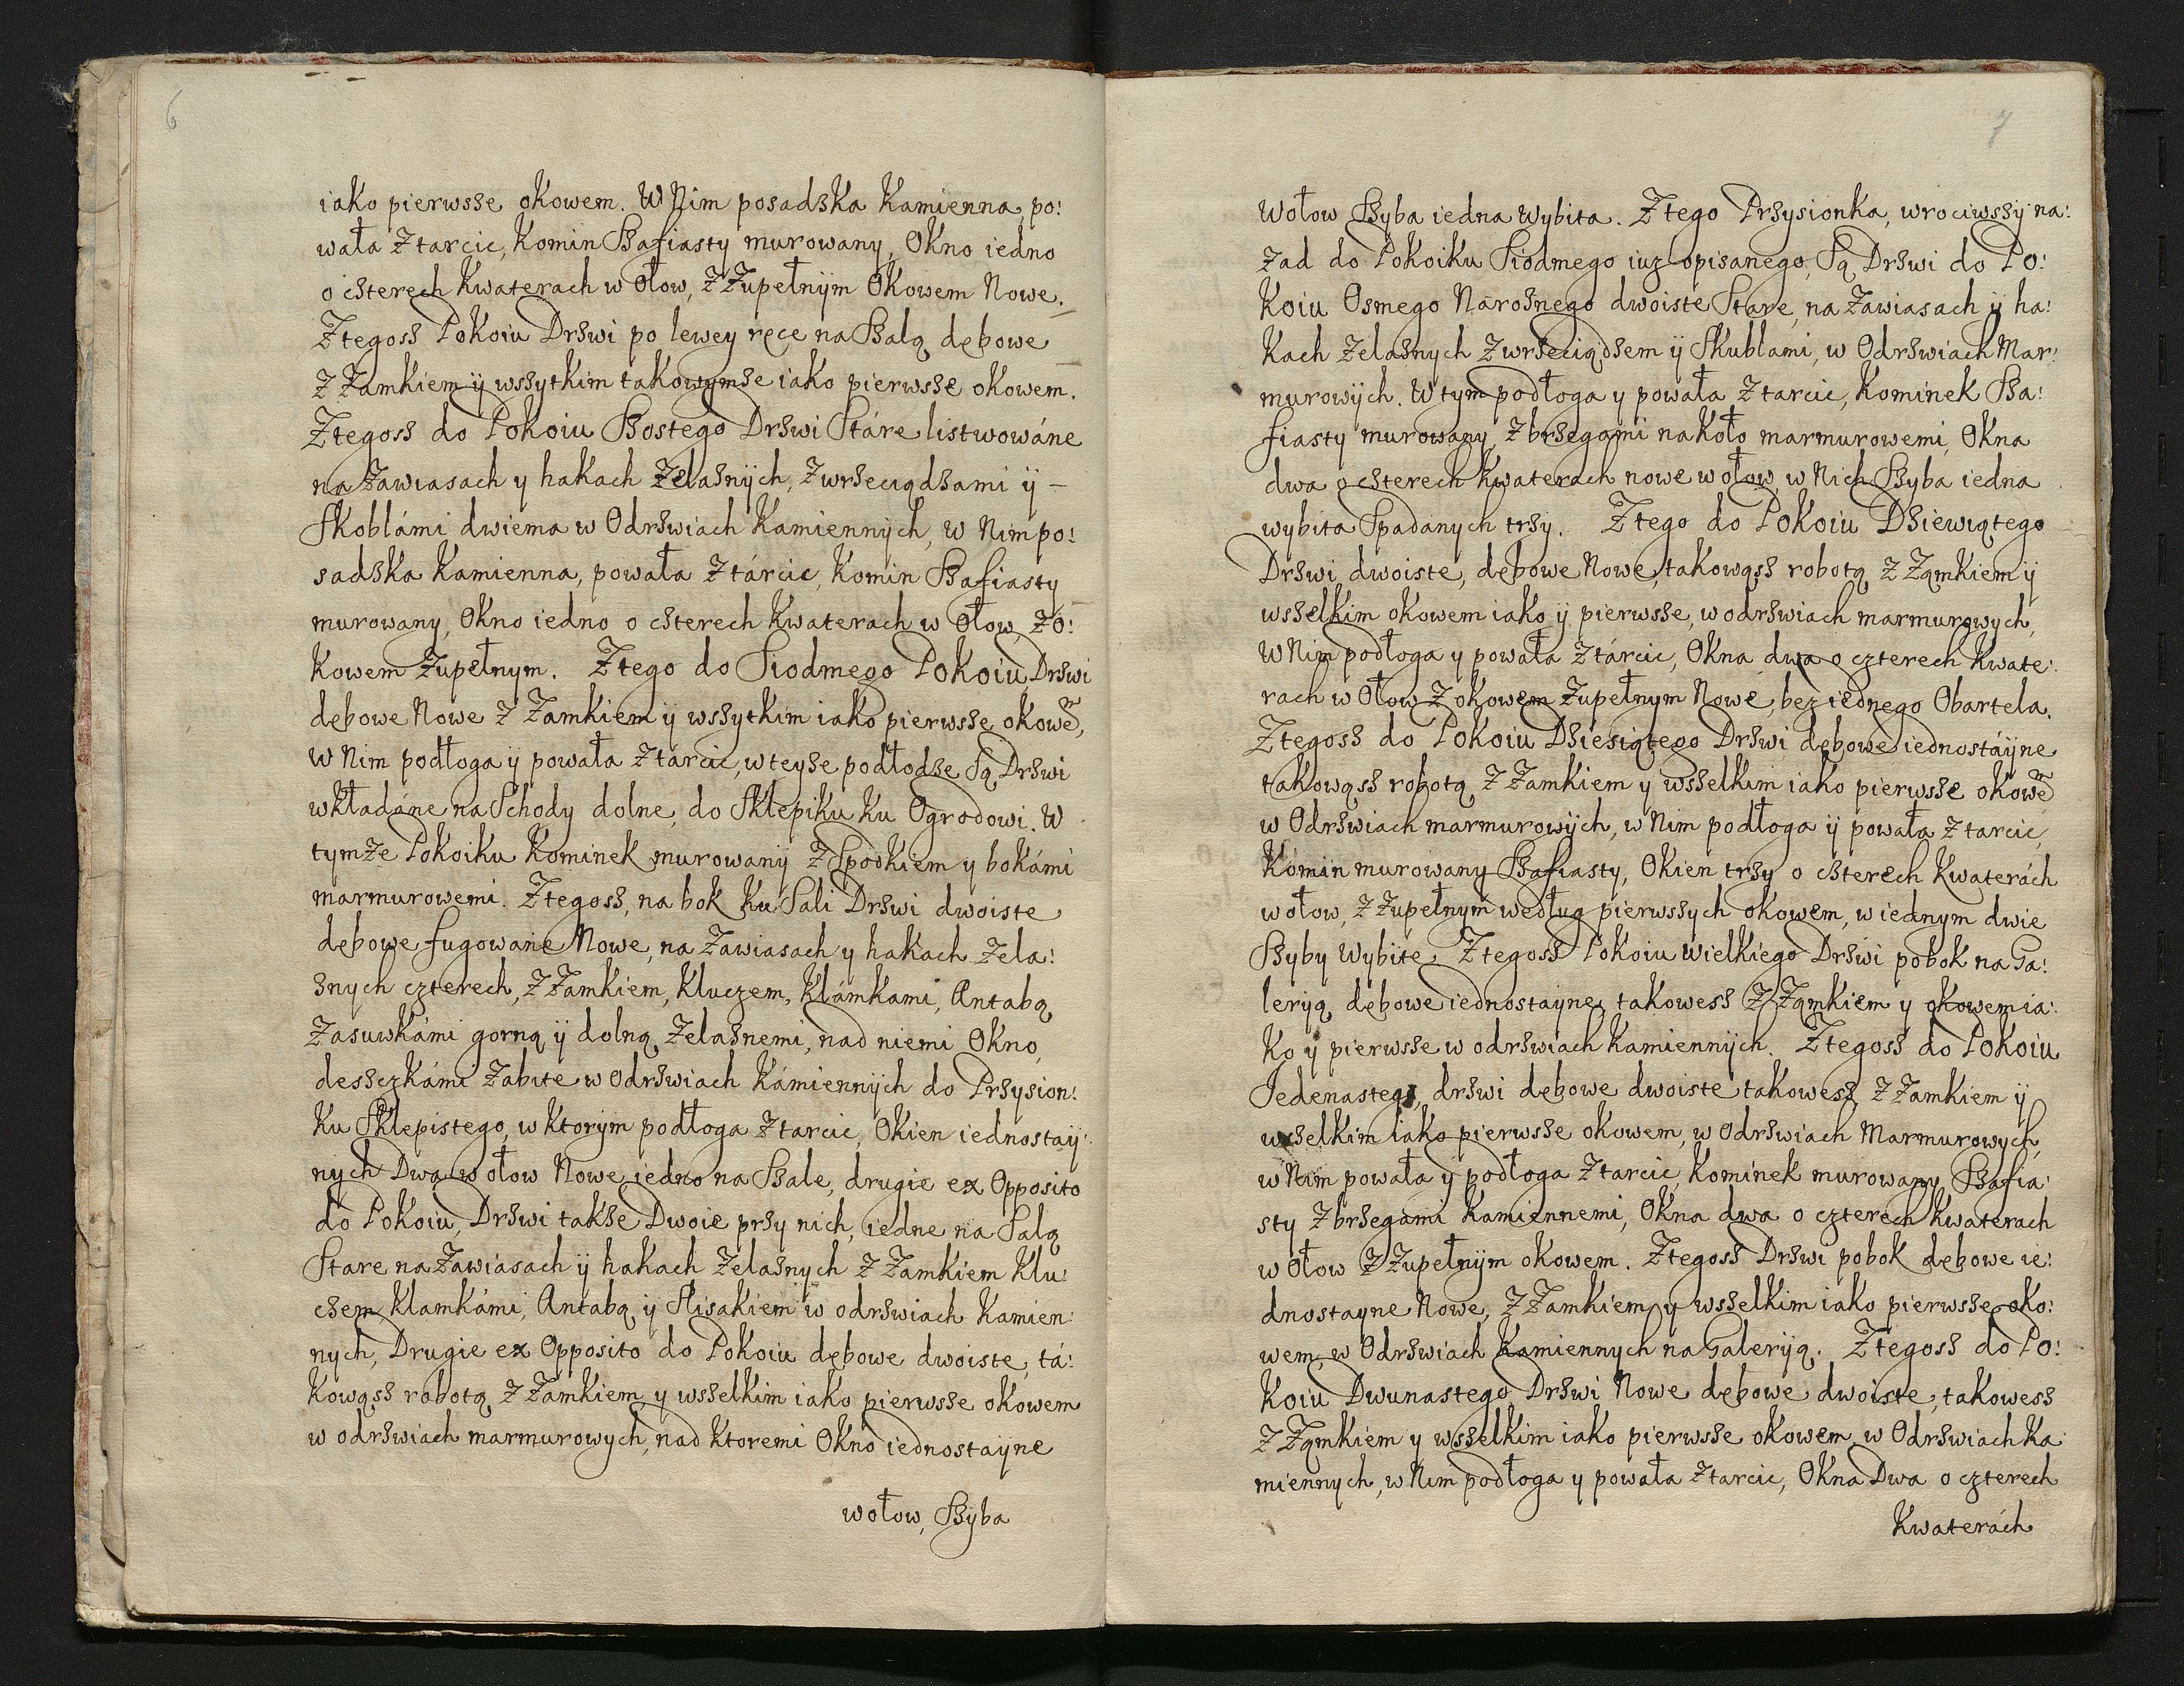 6
iako pierwsze okowem. W Nim posadzka Kamienna, po:
wała z tarcic, Komin Szafiasty murowany, Okno iedno
o czterech Kwaterach w Ołow, z Zupełnÿm Okowem Nowe.
Z tegosz Pokoiu Drzwi po lewey ręce na Salą dębowe
z Zamkiem ÿ wszytkim takowymze iako pierwsze okowem.
Z tegosz do Pokoiu Szostego Drzwi Stáre listwowáne
na Zawiasach y hakach Zelaznÿch, z wrzeciądzami ÿ –
Skoblámi dwiema w Odrzwiach Kamiennÿch, w Nim po:
sadzka Kamienna, powała z tárcic, Komin Szafiasty
murowany, Okno iedno o czterech Kwaterach w Ołow, z O:
Kowem Zupełnym. Z tego do Siodmego Pokoiu Drzwi
dębowe Nowe z Zamkiem ÿ wszytkim iako pierwsze okowem,
W Nim podłoga ÿ powała z tarcic, w teyze podłodze Są Drzwi
wkładáne na Schody dolne, do Sklepiku Ku Ogrodowi. W
tymze Pokoiku Kominek murowanÿ z Spodkiem y bokámi
marmurowemi. Z tegosz, na bok Ku Sali Drzwi dwoiste
dębowe fugowane Nowe, na Zawiasach y hakach Zela:
znych czterech, z Zamkiem, Kluczem, Klámkami, Antabą
Zasuwkámi gorną ÿ dolną Zelaznemi, nad niemi Okno,
desszkámi Zabite w Odrzwiach Kámiennÿch do Przysion:
Ku Sklepistego, w Ktorym podłoga z tarcic, Okien iednostaÿ:
nych Dwa w ołow Nowe iedno na Sale, drugie ex Opposito
do Pokoiu, Drzwi takze Dwoie przy nich, iedne na Salą
Stare na Zawiasach ÿ hakach Zelaznych z Zamkiem Klu:
czem Klamkámi, Antabą ÿ Hisakiem w odrzwiach Kamien:
nych, Drugie ex Opposito do Pokoiu dębowe dwoiste, tá:
Kowąsz robotą z Zamkiem y wszelkim iako pierwsze okowem
w odrzwiach marmurowych, nad Ktoremi Okno iednostaÿne
w ołow, Szyba
7
w ołow Szyba iedna wybita. Z tego Przysionka, wrociwszy na:
zad do Pokoiku Siodmego iuz opisanego, Są Drzwi do Po:
Koiu Osmego Naroznego dwoiste Stare, na Zawiasach ÿ ha:
Kach Zelaznych z wrzeciądzem ÿ Skublami, w Odrzwiach Mar:
murowÿch. W tym podłoga y powała z tarcic, Kominek Sza:
fiasty murowany, z brzegami na koło marmurowemi, Okna
dwa o czterech Kwaterach nowe w ołow, w Nich Szyba iedna
wybita Spadanych trzy. Z tego do Pokoiu Dziewiątego
Drzwi dwoiste, dębowe Nowe, takowąsz robotą z Ząmkiem ÿ
wszelkim okowem iako ÿ pierwsze, w odrzwiach marmurowych,
W Nim podłoga y powała z tárcic, Okna dwa o czterech Kwate:
rach w Ołow z okowem Zupełnym Nowe, bez iednego Obartela.
Z tegosz do Pokoiu Dziesiątego Drzwi dębowe iednostáÿne
takowąsz robotą z Zamkiem y wszelkim iako pierwsze okowem
w Odrzwiach marmurowÿch, w Nim podłoga ÿ powała z tarcic,
Komin murowany Szafiasty, Okien trzy o czterech Kwaterách
w ołow, z Zupełnym według pierwszych okowem, w iednym dwie
Szyby wybite. Z tegosz Pokoiu wielkiego Drzwi pobok na Ga:
leryą, dębowe iednostayne, takowesz z Ząmkiem y okowem ia:
Ko y pierwsze w odrzwiach Kamiennÿch. Z tegosz do Pokoiu
Iedenastego, drzwi dębowe dwoiste takowesz z Zamkiem ÿ
wszelkim iako pierwsze okowem, w Odrzwiach Marmurowych,
w Nim powała ÿ podłoga z tarcic, Kominek murowany Szafia:
sty z brzegami Kamiennemi, Okna dwa o czterech Kwaterach
w Ołow z Zupełnÿm okowem. Z tegosz Drzwi pobok dębowe ie:
dnostayne Nowe, z Zamkiem y wszelkim iako pierwsze oko:
wem, w Odrzwiach Kamiennych na Galeryą. Z tegosz do Po:
Koiu Dwunastego Drzwi Nowe dębowe dwoiste, takowesz
z Ząmkiem y wszelkim iako pierwsze okowem w Odrzwiach Ka:
miennych, w Nim podłoga y powała z tarcic, Okna Dwa o czterech
Kwaterách